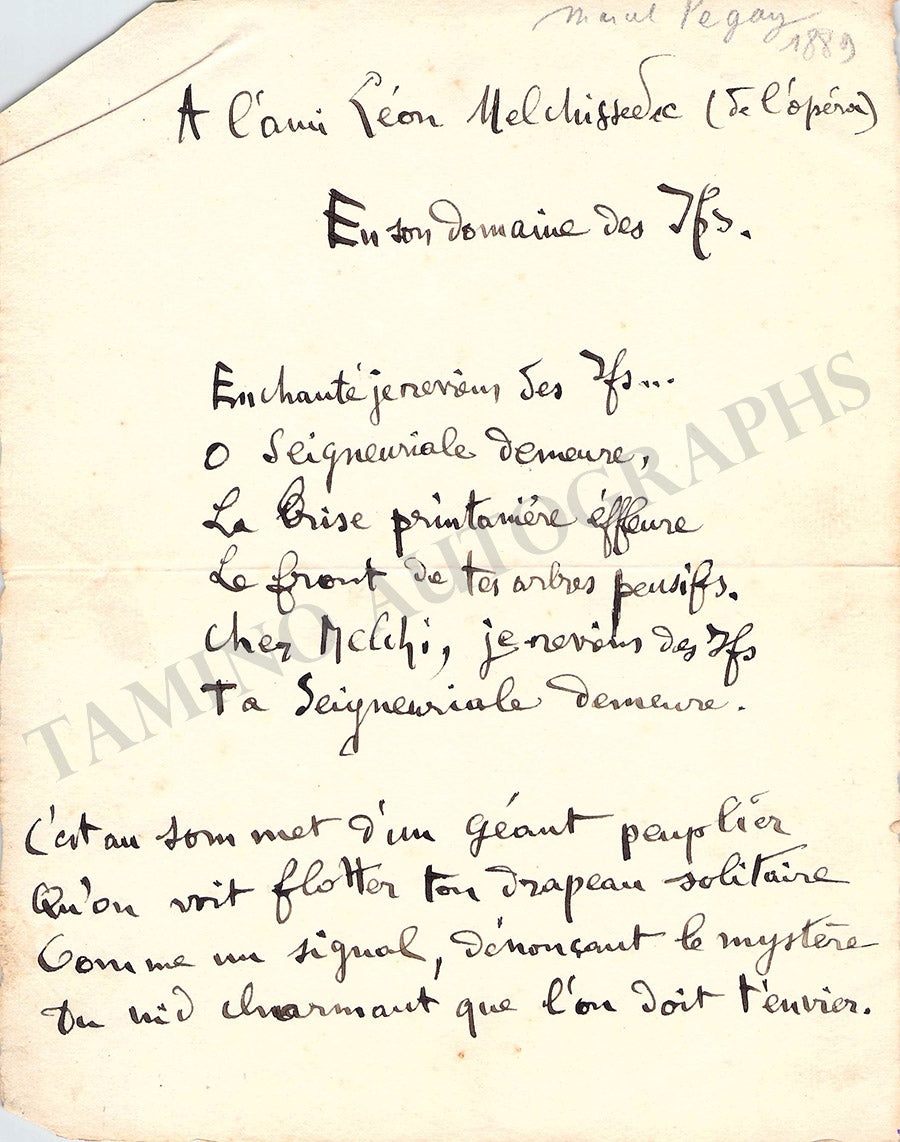 Marcel Legay
1889
A l'ami Léon Melchissedec (de l'opéra)
En son domaine des Ifs.
Enchanté je reviens des Ifs...
O Seigneuriale demeure,
La Brise printanière éffleure
Le front de tes arbres pensifs.
Cher Melchi, je reviens des Ifs
Ta Seigneuriale demeure.
C'est au sommet d'un Géant peuplier
Qu'on voit flotter ton drapeau solitaire
Comme un signal, dénonçant le mystère
Du nid charmant que l'on doit t'envier.
TAMINO AUTOGRAPHS